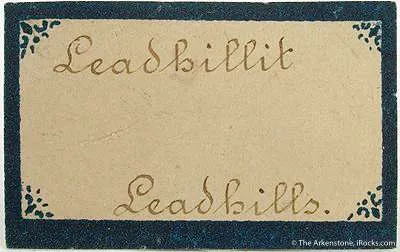 Leadhillit
Leadhills.
© The Arkenstone, iRocks.com